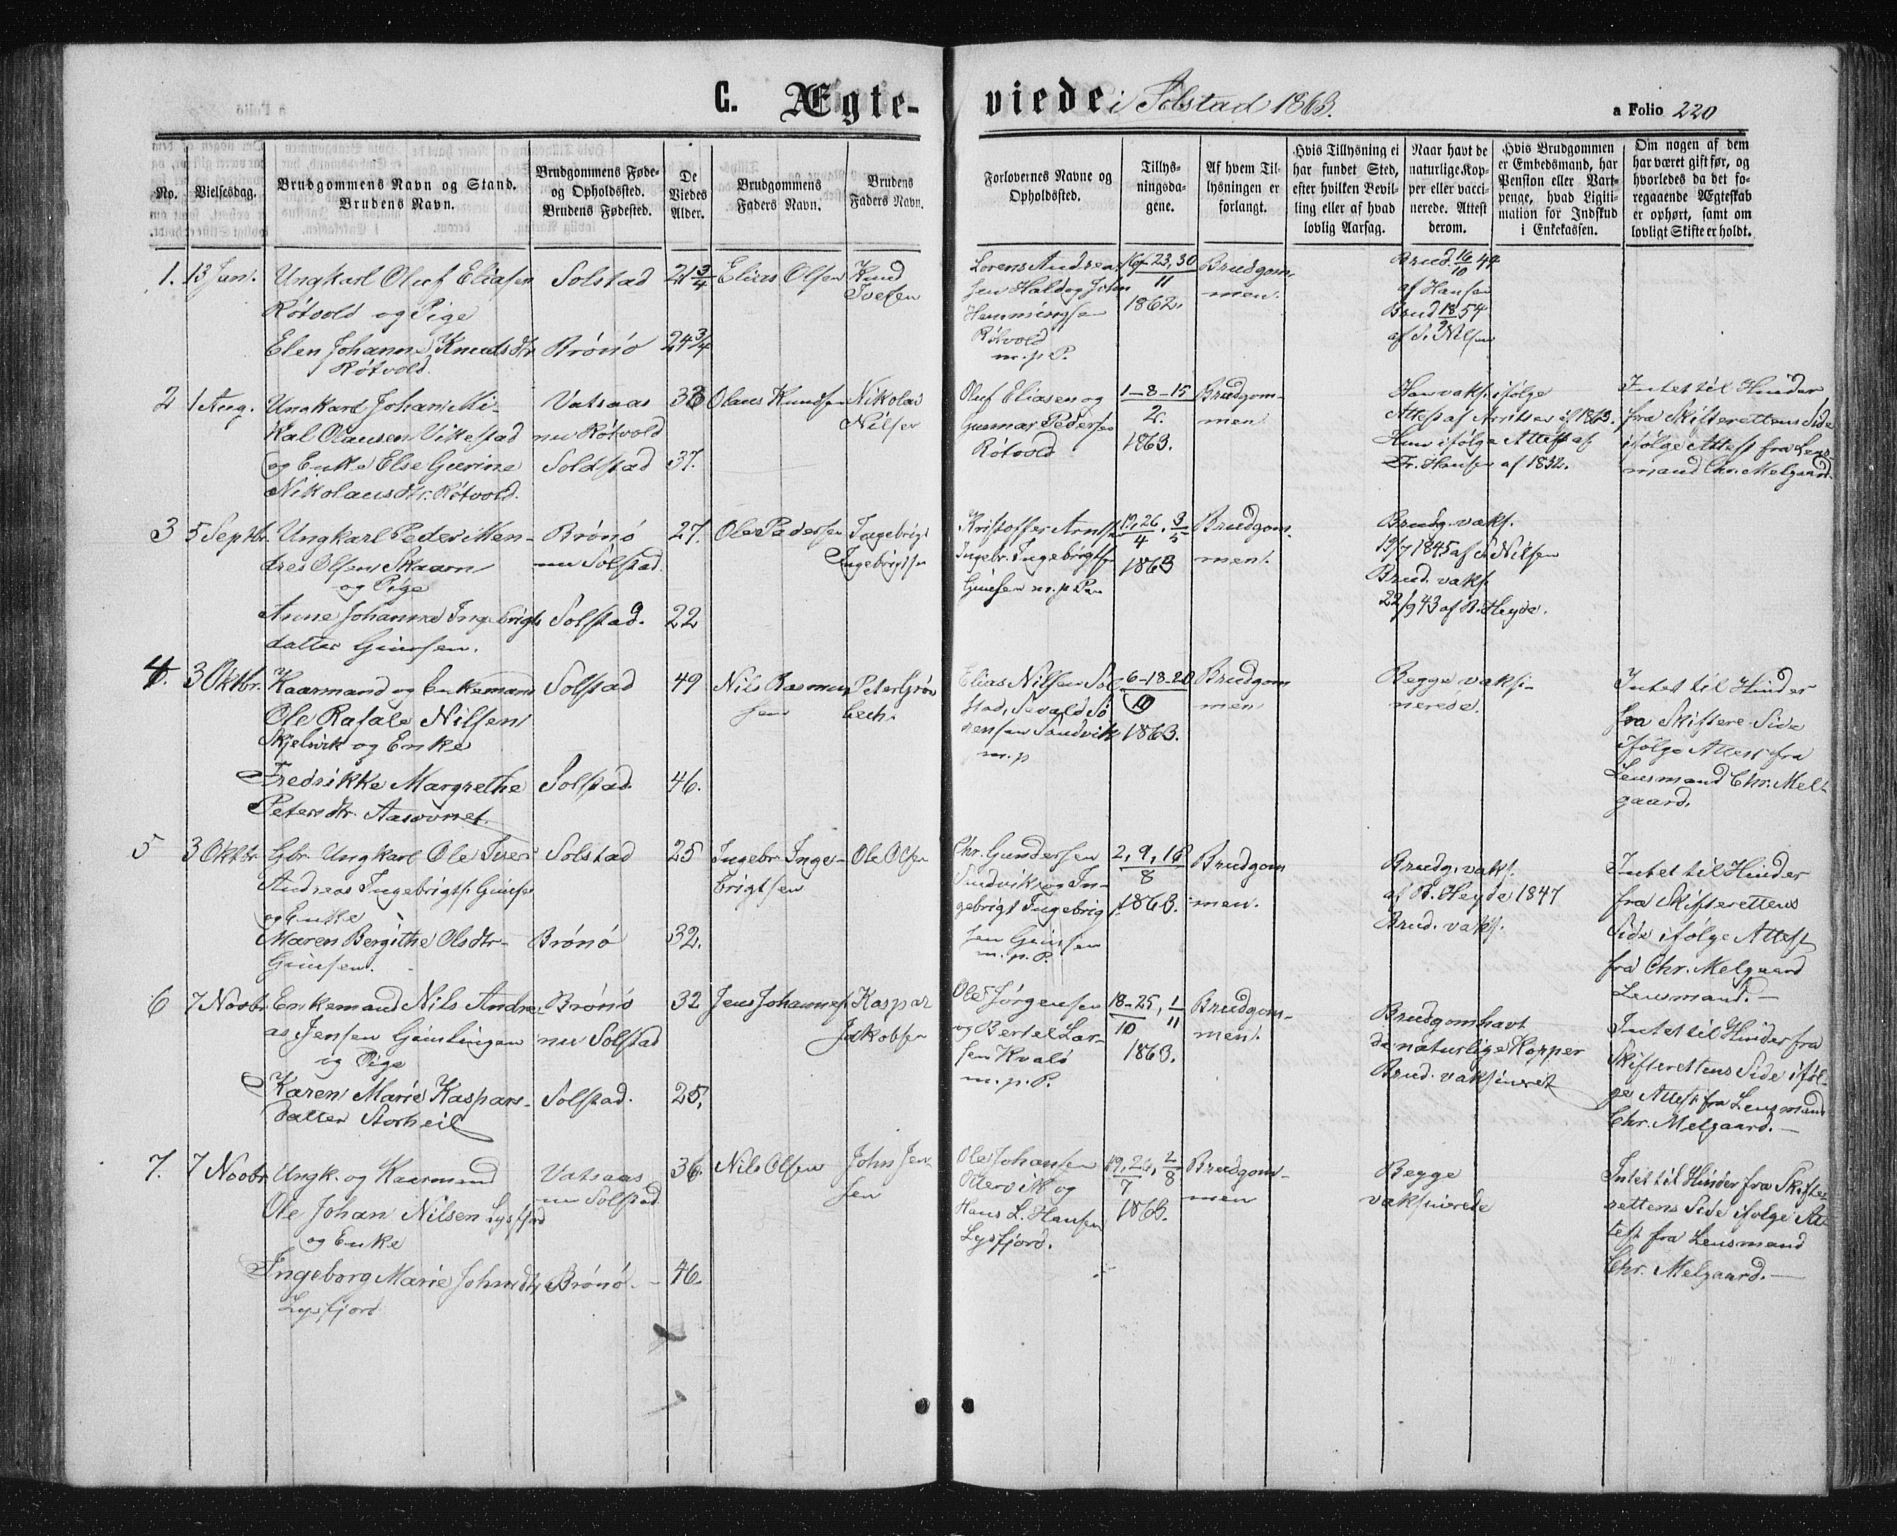 C. Ægte-
viede i Solstad 1863.
a Folio 220
No.
Vielsesdag.
Brudgommens Navn og Stand.
Brudens Navn.
Brudgommens Føde-
og Opholdssted.
Brudens Fødested.
De
Viedes
Alder.
Brudgommens
Faders Navn.
Brudens
Faders Navn.
Forlovernes Navne og
Opholdssted.
Tillys-
ningsda-
gene.
Af hvem Til-
lysningen er
forlangt.
Hvis Tillysning ei
har fundet Sted,
efter hvilken Bevil-
ling eller af hvad
lovlig Aarsag.
Naar havt de
naturlige Kop-
per eller vacci-
nerede. Attest
derom.
Hvis Brudgommen
er Embedsmand, har
Pension eller Vart-
penge, hvad Ligiti-
mation for Indskud
i Enkekassen.
Om nogen af dem
har været gift før, og
hvorledes da det fo-
regaaende Ægteskab
er ophørt, samt om
lovligt Skifte er holdt.
1. 13 Jan.
Ungkarl Oluf Eliasen
Røtvold og Pige
Elen Johanne Knudsdtr
Røtvold.
Solstad
Brønø
21 3/4
24 3/4
Elias Olsen
Knud
Ivelsen
Lorens Andrea
sen Hald og John
Hemmingsen
Røtvold
m. p. P.
16-23, 30
11
1862.
Brudgom-
men.
Brud. 16/10 44
af Hansen
Brud 18/9 54
af S. Nilsen
2 1 Aug.
Ungkarl Johan Mi-
kal Olausen Vikestad
og Enke Else Gurine
Nikolausdtr. Røtvold.
Vatsaas
nu Røtvold
Soldstad
33
37.
Olaus Knudsen
Nikolas
Nilsen
Oluf Eliasen og
Gunnar Pedersen
Røtvold
1-8-15
2.
1863.
Brudgom-
men.
Han vaks. ifølge
Attest af Arntsen af 1863.
Hun ifølge Attest af
Fr. Hansen af 1832.
Intet til Hinder
fra Skifterettens Side
ifølge Attest fra Lens-
mand Chr. Melgaard.
3 5 Septbr.
Ungkarl Peder Men-
dres Olsen Skaarn
og Pige
Anne Johanna Ingebrigts
datter Guusen.
Brønø
nu Solstad.
Solstad.
27.
22
Ole Pedersen
Ingebrigt
Ingebrigtsen
Kristoffer Arnts.
Ingebr. Ingebrigtsen
Guusen m. p. P.
19, 26. 3
4 5
1863
Brudgom-
men.
Brudg. vaks.
19/7 1845 af S. Nilsen
Brud. vaks.
22/9 43 af B. Heyde.
4. 3 Oktbr.
Kaarmand og Enkemand
Ole Rafale Nilsen
Skjelvik og Enke
Fredrikke Margrethe
Petersdtr. Aasovnet
Solstad
Solstad.
49
46.
Nils Rasmus
sen
Peter Grøn
bech
Elias Nilsen Sol
stad, Sevald Sø
rensen Sandvik
m. p
6-13-20
1863.
Brudgom
men
Begge vaksi-
nerede.
Intet til Hinder
fra Skiftere. Side
ifølge Attest fra
Lensmand Chr. Mel-
gaard.
5 3 Oktbr
Gbr. Ungkarl Ole Iver
Andreas Ingebrigts. Guusen
og Enke
Maren Bergithe Olsdtr-
Guusen.
Solstad
Brønø
25
32.
Ingebr. Inge-
brigtsen
Ole Olsen
Chr. Gundersen
Sandvik og In-
gebrigt Ingebrigt-
sen Guusen
m. p. P.
2, 9, 16
8
1863.
Brudgom
men.
Brudg. vaks.
af B. Heyde 1847
Brud. vaks.
Intet til Hinder
fra Skifterettens
Side ifølge Attest
fra Chr. Melgaard
Lensmand. —
6 7 Novbr.
Enkemand Nils Andre-
as Jensen Guuslingen
og Pige
Karen Marie Kaspars-
datter Storheil
Brønø
nu Solstad
Solstad.
32
25,
Jens Johannes.
Kaspar
Jakobsen
Ole Jørgensen
og Bertel Lar-
sen Kvalø
m. p. P.
18-25, 1
10 11
1863.
Brudgom-
men.
Brudgom havt
de naturlige Kopper
Brud. vaksineret
Intet til Hinder fra
Skifterettens Side iføl-
ge Attest fra Lensmand
Chr. Melgaard. —
7. 7 Novbr
Ungk. og Kaarmand
Ole Johan Nilsen Lysfjord
og Enke
Ingeborg Marie Johnsdtr
Lysfjord
Vatsaas
nu Solstad
Brønø
36.
46.
Nils Olsen
John Jen-
sen
Ole Johansen
Otervik og
Hans L. Hansen
Lysfjord.
19, 26, 2
7 8
1863.
Brudgom-
men
Begge
vaksinerede
Intet til Hinder fra Skifte-
rettens Side ifølge At-
test fra Lensmand
Chr. Melgaard. —